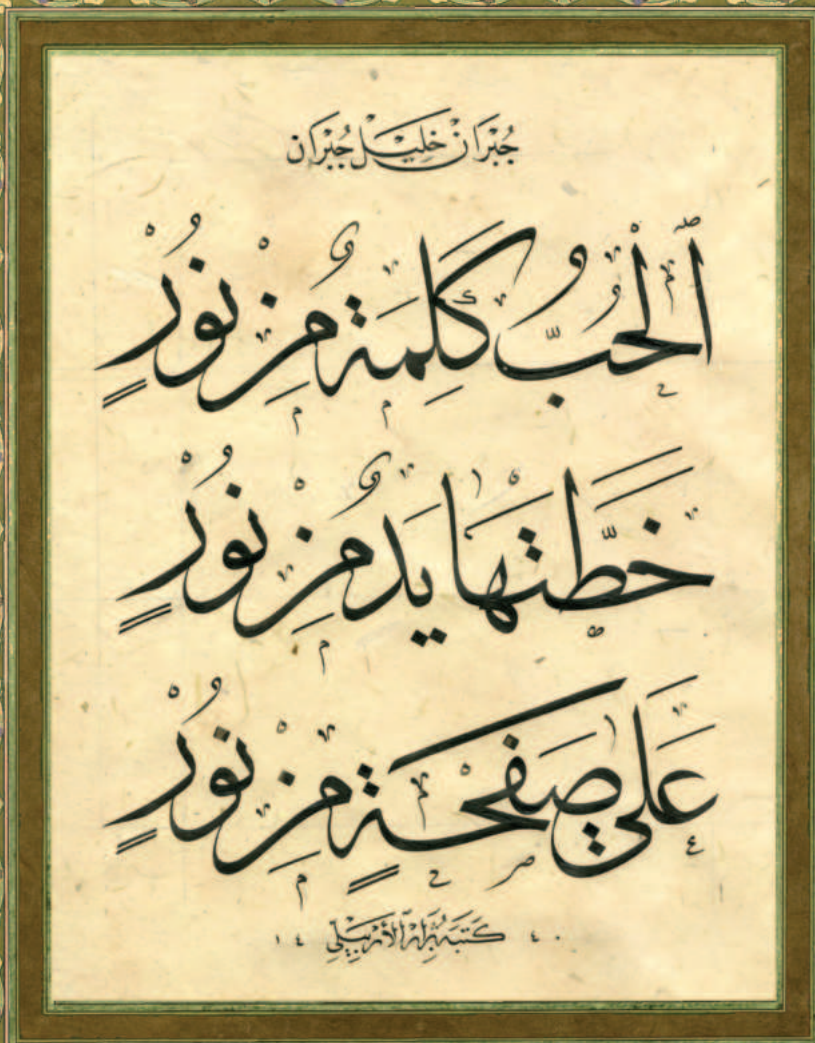 جُبْرَانْ خَلِيْل جُبْرَان
اَلْحُبُّ كَلِمَةٌ مِنْ نُوْرٍ
خَطَّتْهَا يَدٌ مِنْ نُوْرٍ
عَلَى صَفْحَةٍ مِنْ نُوْرٍ
٤٠ كَتَبَهُ نِزَارْ الأَرْبِيْلِيّ ١٤